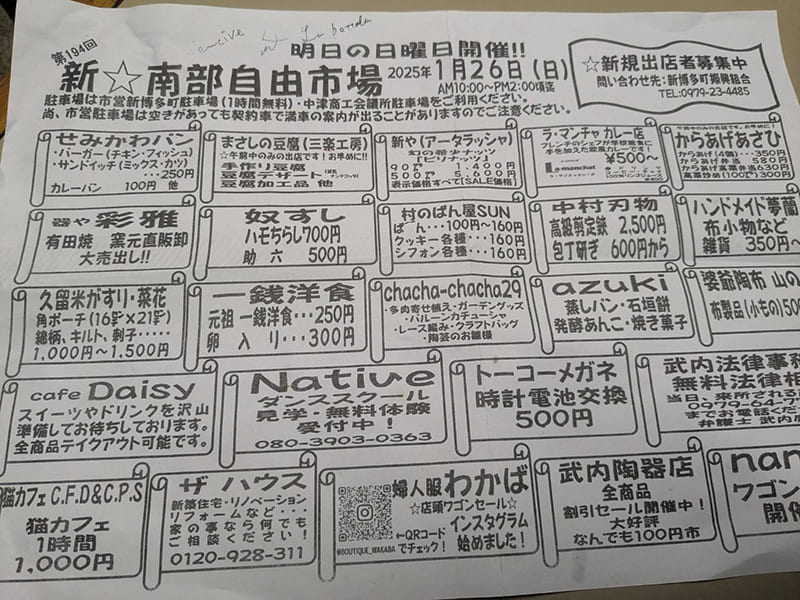 第194回
明日の日曜日開催!!
新☆南部自由市場
2025年1月26日(日)
AM10:00〜PM2:00頃迄
駐車場は市営新博多町駐車場(1時間無料)・中津商工会議所駐車場をご利用ください。
尚、市営駐車場は空きがあっても契約車で満車の案内が出ることがありますのでご注意ください。
☆新規出店者募集中
問い合わせ先:新博多町振興組合
TEL:0979-23-4485
せみかわパン
・バーガー(チキン・フィッシュ)
・サンドイッチ(ミックス・カツ)
…250円
カレーパン 100円 他
まさしの豆腐(三楽工房)
☆午前中のみの出店です!お早めに!!
手作り豆腐
豆腐デザート
豆腐加工品 他
新や(アータラッシャ)
幻の落花生
『Pピリナッツ』
90㌘ 1,600円
500㌘ 5,600円
表示価格すべて[SALE価格]
ラ・マンチャ カレー店
フレンチのシェフが学校給食に
手を加えた欧風カレーです!
¥500〜
La manchat
からあげあさひ
からあげ(4個)…350円
からあげ弁当 580円
からあげ高菜弁当 630円
高菜炒め(100㌘)300円
器や 彩雅
有田焼 窯元直販卸
大売出し!!
奴すし
ハモちらし700円
助六 500円
村のぱん屋SUN
ぱん…100円〜160円
クッキー各種…160円
シフォン各種…160円
中村刃物
高級剪定鋏 2,500円
包丁研ぎ 600円から
ハンドメイド夢蘭
布小物など
雑貨 350円〜
久留米がすり・菜花
角ポーチ(16㌢×21㌢)
綿柄、キルト、刺子……
1,000円〜1,500円
一銭洋食
元祖 一銭洋食…250円
卵入り…300円
chacha-chacha29
・多肉寄せ植え・ガーデングッズ
・バルーンカチューシャ
・レース編み・クラフトバッグ
・陶芸のお雛様
azuki
蒸しパン・石垣餅
発酵あんこ・焼き菓子
婆爺陶布 山の
布製品(小もの)500
cafe Daisy
スイーツやドリンクを沢山
準備してお待ちしております。
全商品テイクアウト可能です。
Native
ダンススクール
見学・無料体験
受付中!
080-3903-0363
トーコーメガネ
時計電池交換
500円
武内法律事務
無料法律相
当日、来所される
0979-64-7
までお電話くだ
弁護士 武内
猫カフェ C.F.D&C.P.S
猫カフェ
1時間
1,000円
ザ ハウス
新築住宅・リノベーション
リフォームなど…
家の事なら何でも
ご相談ください!
0120-928-311
婦人服 わかば
☆店頭ワゴンセール☆
インスタグラム
始めました!
←QRコード
でチェック!
@BOUTIQUE_WAKABA
武内陶器店
全商品
割引セール開催中!
大好評
なんでも100円市
nan
ワゴン
開催